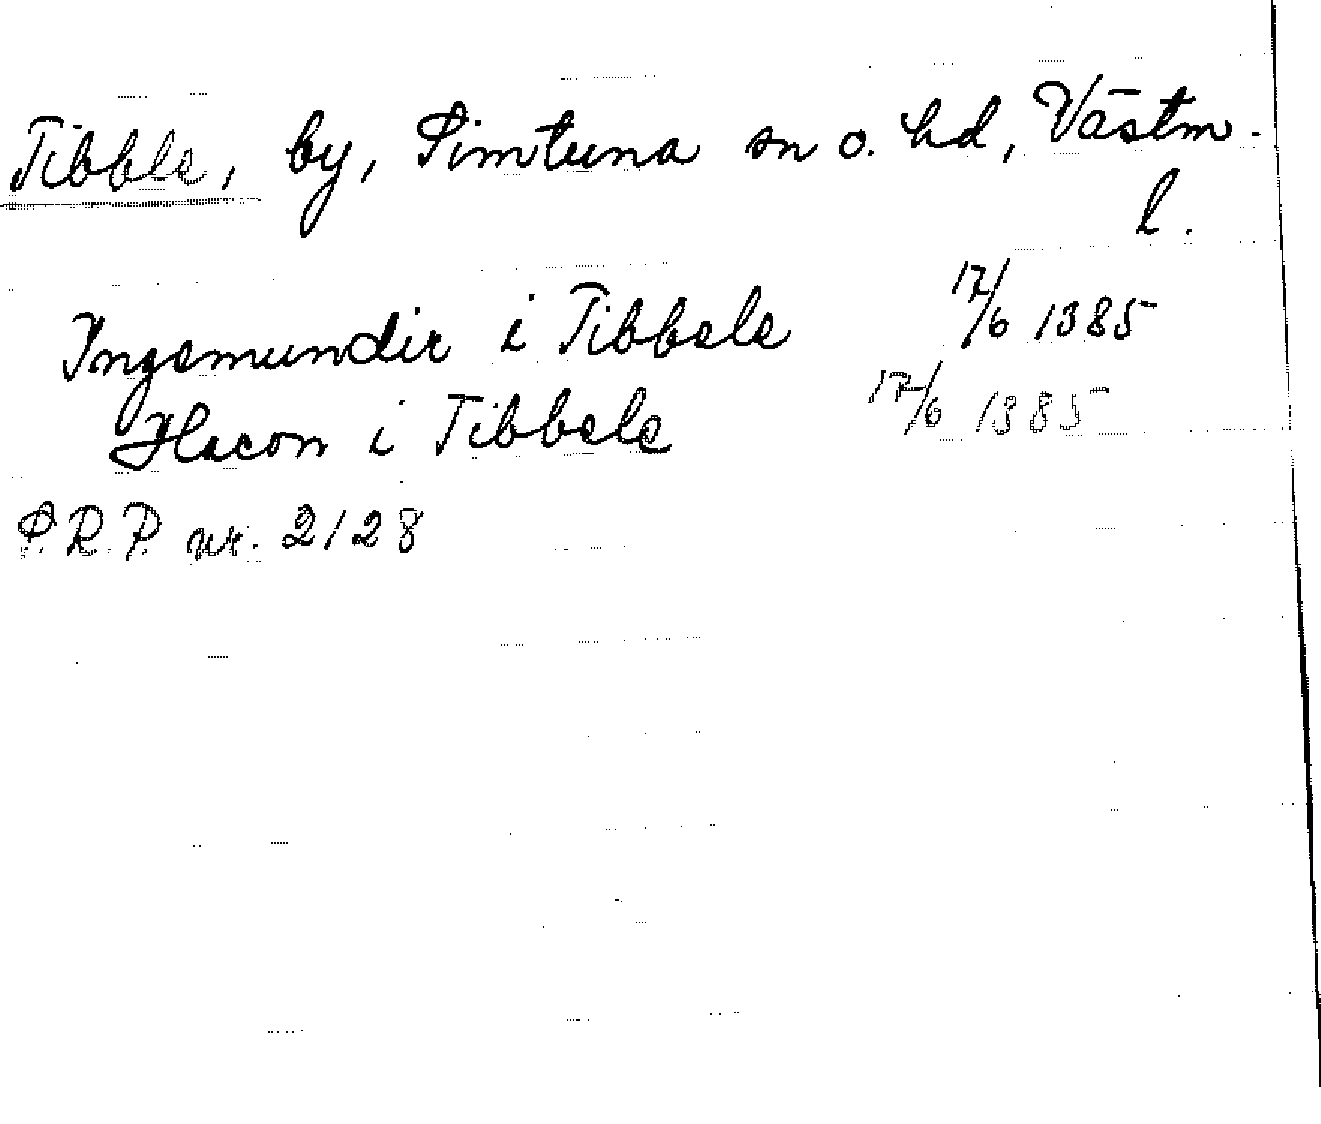 Tibble, by, Simtuna sn o. hd, Västm.
l.
Ingemundir i Tibbele 17/6 1385
Hacon i Tibbele 17/6 1385
S.R.P. nr. 2128